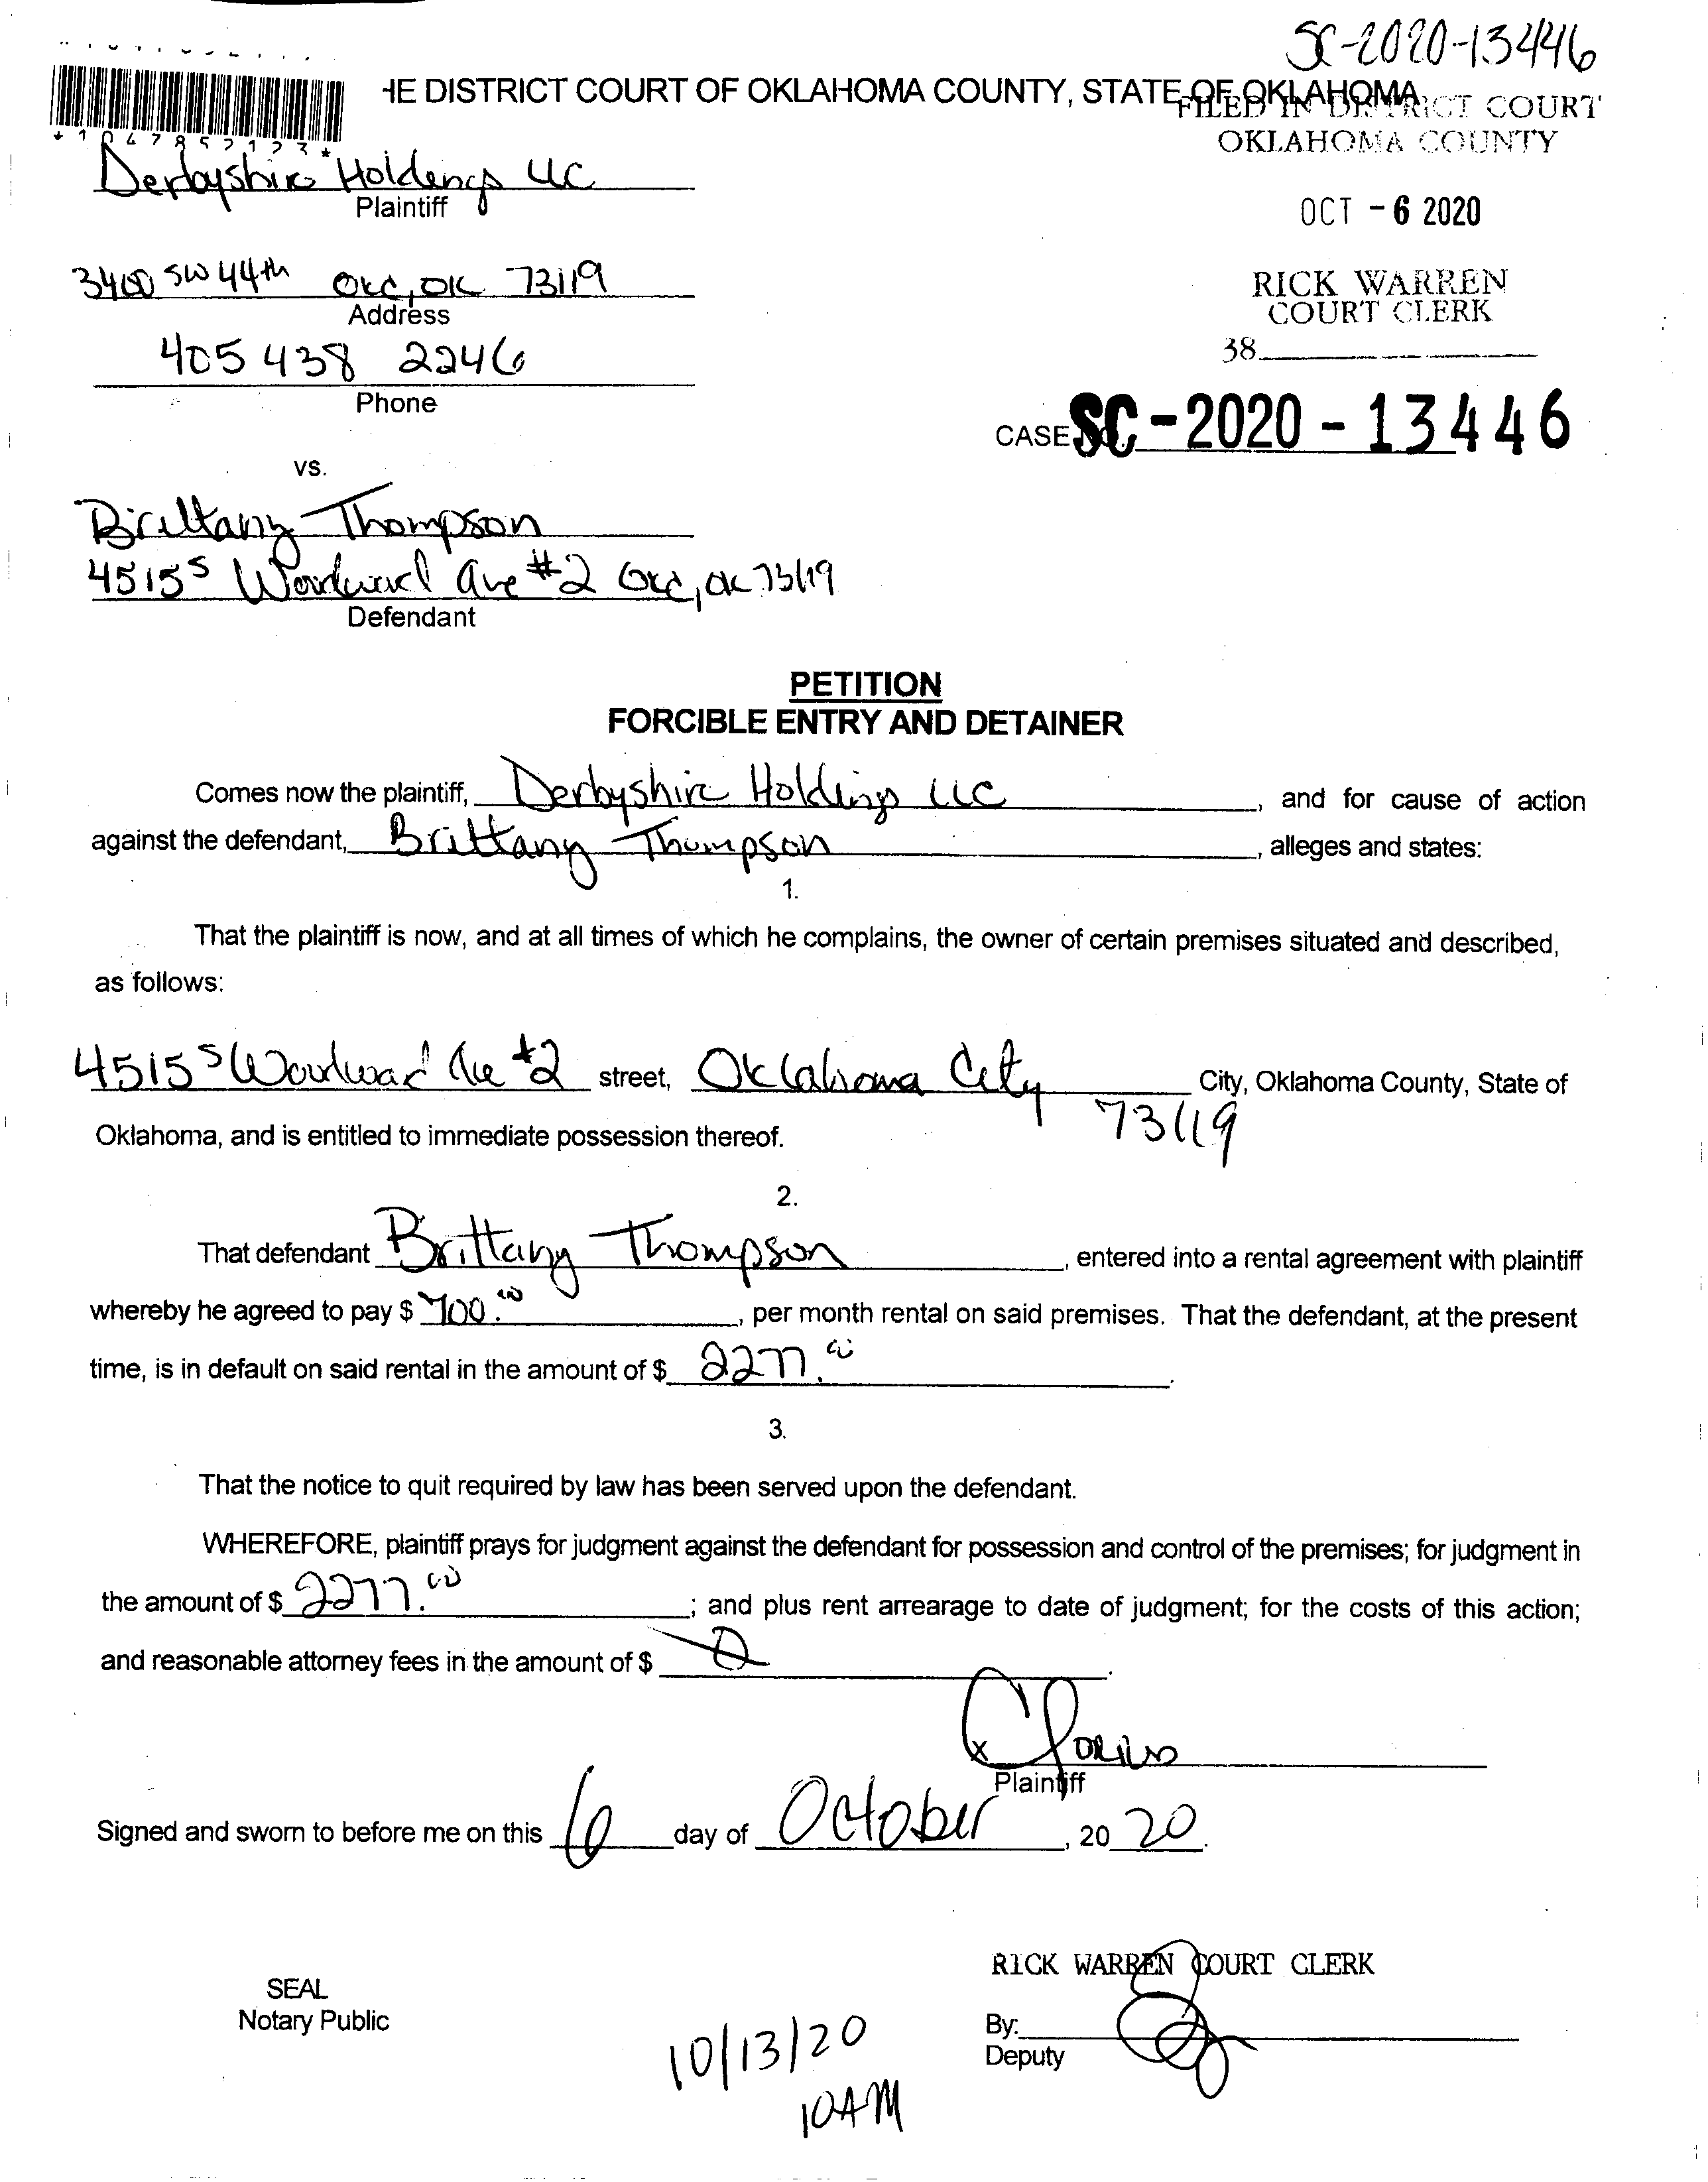 SC-2020-13446
HE DISTRICT COURT OF OKLAHOMA COUNTY, STATE OF OKLAHOMA
FILED IN DISTRICT COURT
OKLAHOMA COUNTY
*1047852123*
Derbyshire Holdings LLC
Plaintiff
OCT - 6 2020
3400 SW 44th OKC, OK 73119
Address
RICK WARREN
COURT CLERK
405 438 2246
Phone
38
CASE NO. SC-2020-13446
vs.
Brittany Thompson
4515 S Woodward Ave #2 OKC, OK 73119
Defendant
PETITION
FORCIBLE ENTRY AND DETAINER
Comes now the plaintiff, Derbyshire Holdings LLC, and for cause of action
against the defendant, Brittany Thompson, alleges and states:
1.
That the plaintiff is now, and at all times of which he complains, the owner of certain premises situated and described,
as follows:
4515 S Woodward Ave #2 street, Oklahoma City City, Oklahoma County, State of
73119
Oklahoma, and is entitled to immediate possession thereof.
2.
That defendant Brittany Thompson, entered into a rental agreement with plaintiff
whereby he agreed to pay $ 700.00, per month rental on said premises. That the defendant, at the present
time, is in default on said rental in the amount of $ 2277.00.
3.
That the notice to quit required by law has been served upon the defendant.
WHEREFORE, plaintiff prays for judgment against the defendant for possession and control of the premises; for judgment in
the amount of $ 2277.00; and plus rent arrearage to date of judgment; for the costs of this action;
and reasonable attorney fees in the amount of $ 0.
x
Plaintiff
Signed and sworn to before me on this 6 day of October, 2020.
RICK WARREN COURT CLERK
SEAL
Notary Public
By:
Deputy
10/13/20
10AM